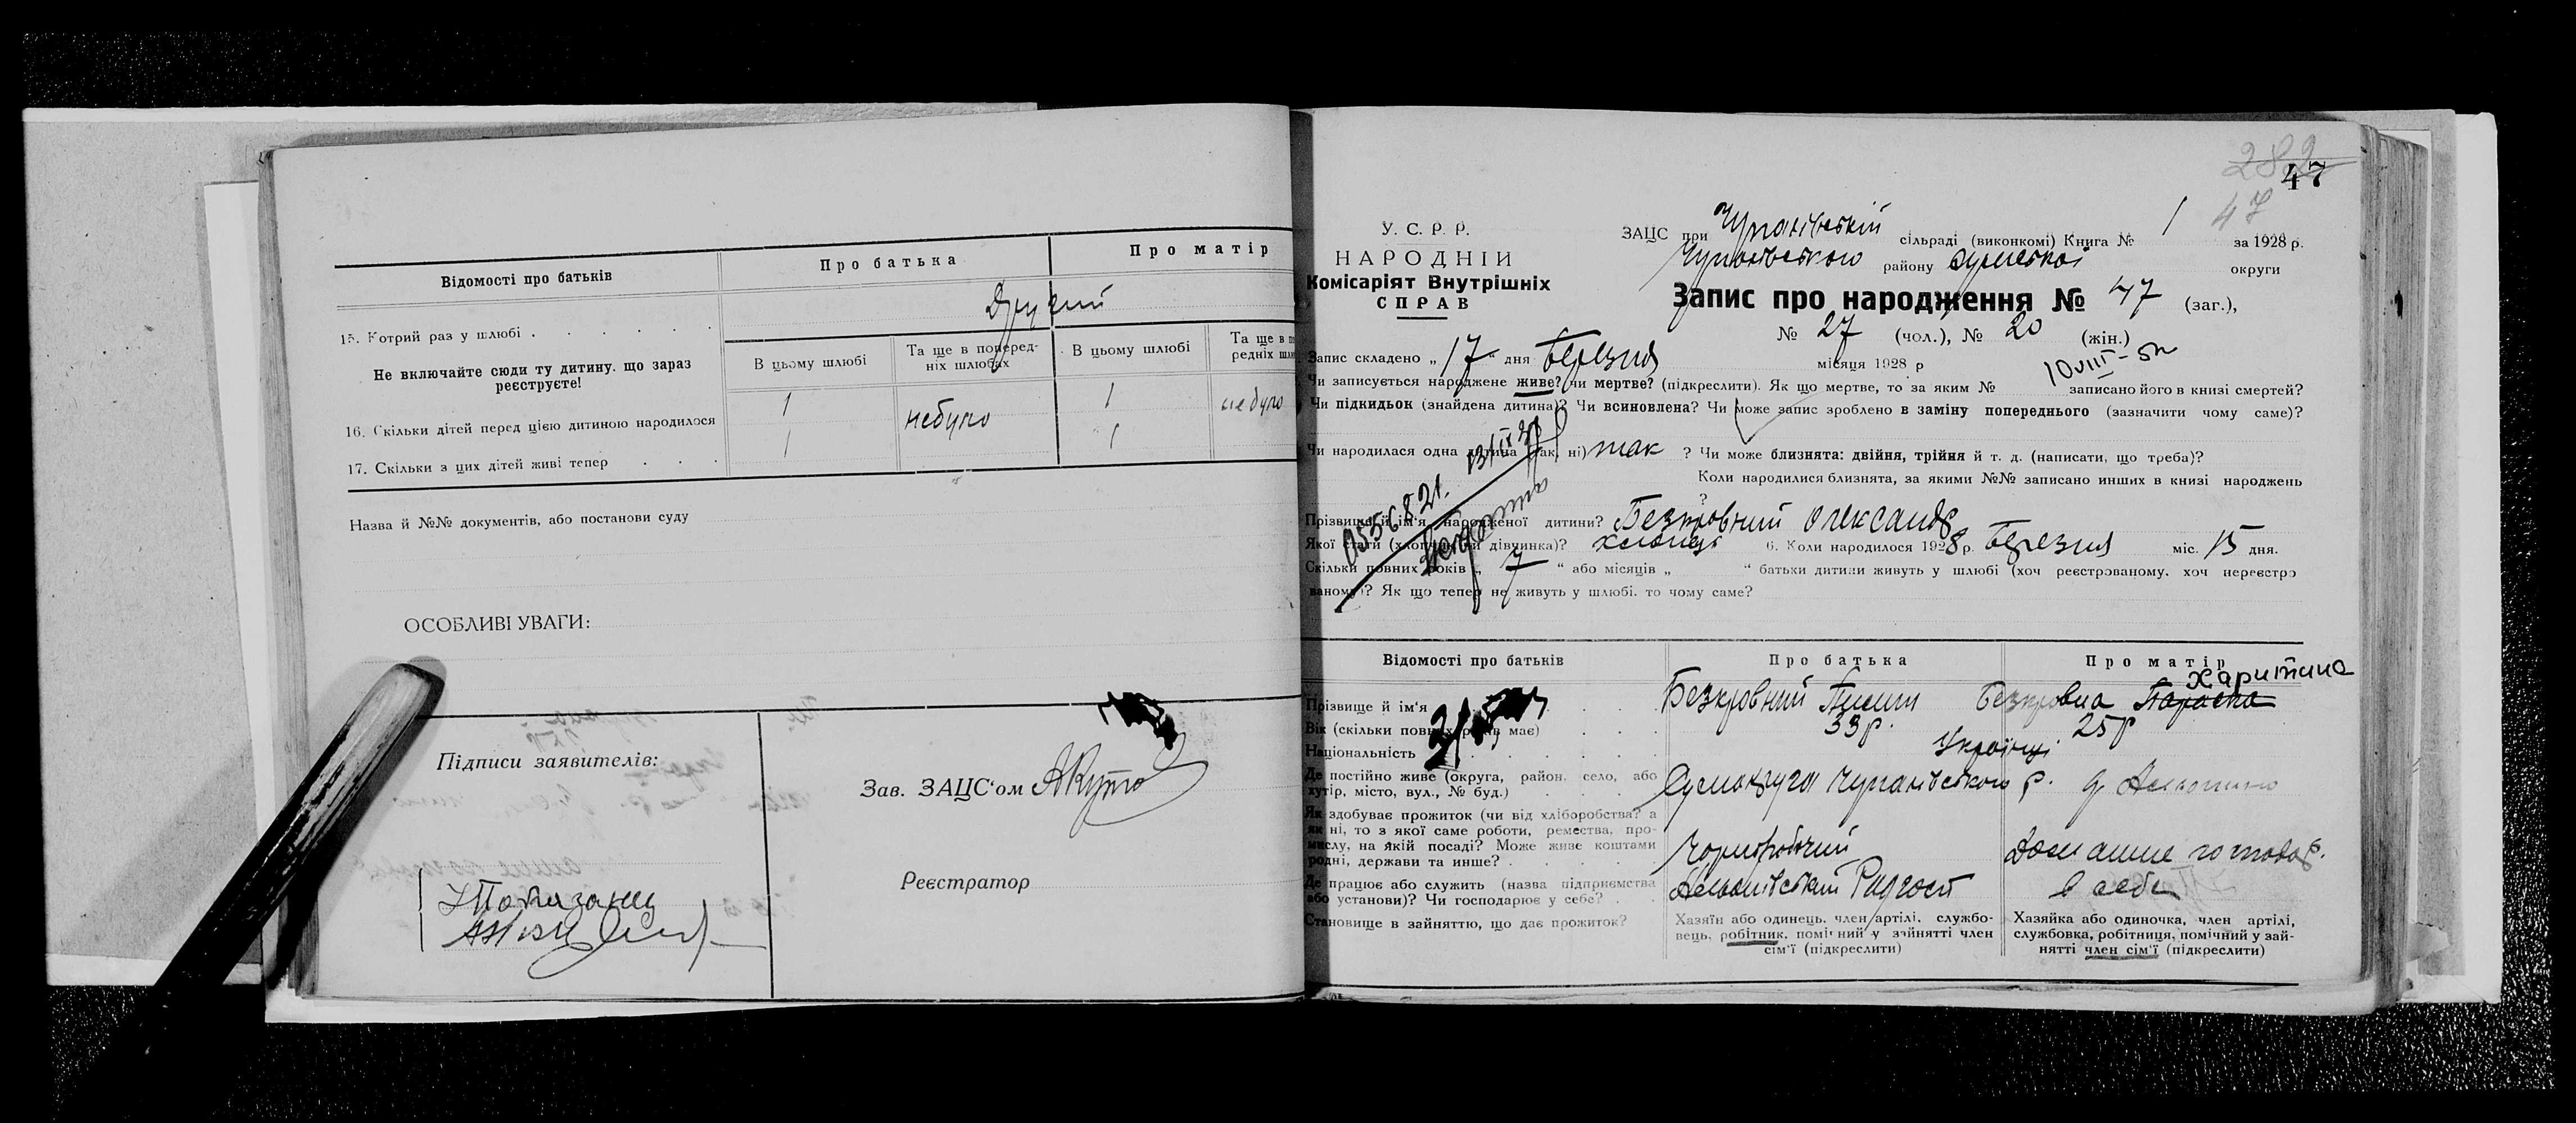 Відомості про батьків
Про батька
Про матір
15. Котрий раз у шлюбі
Другий
Не включайте сюди ту дитину, що зараз
реєструєте!
В цьому шлюбі
Та ще в поперед-
ніх шлюбах
В цьому шлюбі
Та ще в по
редніх шлю
16. Скільки дітей перед цією дитиною народилося
1
небуло
1
небуло
17. Скільки з цих дітей живі тепер
1
1
Назва й №№ документів, або постанови суду
ОСОБЛИВІ УВАГИ:
Підписи заявителів:
Зав. ЗАЦС'ом
Реєстратор
282
47
47
У. С. Р. Р.
НАРОДНІЙ
Комісаріят Внутрішніх
СПРАВ
ЗАЦС при Чупахівській сільраді (виконкомі) Книга № 1 за 1928 р.
Чупахівського району Сумської округи
Запис про народження № 47 (заг.),
№ 27 (чол.), № 20 (жін.)
Запис складено „ 17 “ дня Березня місяця 1928 р
10 VIII-
Чи записується народжене живе? чи мертве? (підкреслити). Як що мертве, то за яким № записано його в книзі смертей?
Чи підкидьок (знайдена дитина)? Чи всиновлена? Чи може запис зроблено в заміну попереднього (зазначити чому саме)?
Чи народилася одна дитина (так, ні) так ? Чи може близнята: двійня, трійня й т. д. (написати, що треба)?
Коли народилися близнята, за якими №№ записано инших в книзі народжень
?
Прізвище й ім'я народженої дитини? Безкровний Олександр
Якої статі (хлопчик чи дівчинка)? хлопець 6. Коли народилося 1928 р. Березня міс. 15 дня.
Скільки повних років „ 7 “ або місяців „ “ батьки дитини живуть у шлюбі (хоч реєстрованому, хоч нереєстро
ваному)? Як що тепер не живуть у шлюбі, то чому саме?
0556821.
Відомості про батьків
Про батька
Про матір
Харитина
Прізвище й ім'я
Безкровний Пилип
Безкровна Параска
Вік (скільки повних років має)
33 р.
25 р
Національність
Українці
Де постійно живе (округа, район, село, або
хутір, місто, вул., № буд.)
Сумокруга Чупахівського р.
Як здобуває прожиток (чи від хліборобства? а
як ні, то з якої саме роботи, ремества, про-
мислу, на якій посаді? Може живе коштами
родні, держави та инше?
Чорноробочий
Домашне господар.
Де працює або служить (назва підприємства
або установи)? Чи господарює у себе?
Радгосп
в себе
Становище в зайняттю, що дає прожиток?
Хазяїн або одинець, член артілі, службо-
вець, робітник, помічний у зайнятті член
сім'ї (підкреслити)
Хазяйка або одиночка, член артілі,
службовка, робітниця, помічний у зай-
нятті член сім'ї (підкреслити)